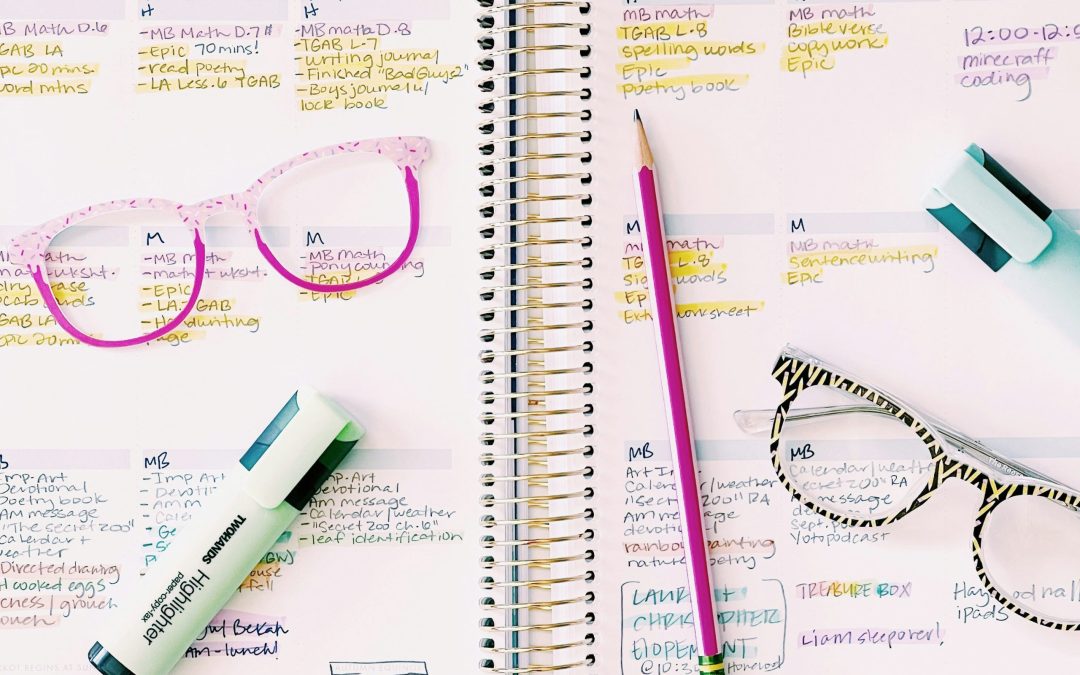 H
MB Math D.6
TGAB LA
Epic 20 mins.
word mtns
H
-MB Math D.7
-Epic 70 mins!
-read poetry
-LA Less.6 TGAB
-MB Math D.8
TGAB L-7
-writing journal
-Finished "Bad Guys 2"
-Boys journal w/
lock book
MB math
TGAB L.8
spelling words
Epic
poetry book
MB math
Bible verse
copywork
Epic
12:00-12:5
minecraft
coding
math wksht.
dry erase
vocab words
TGAB LA
Epic 20 mins
M
-MB math
-math wksht.
-Epic
-LA GAB
-Handwriting
page
M
-MB math
-pony counting
-TGAB L
-Epic
M
MB math
TG L.8
sig words
Ep
Extra worksheet
M
MB math
Sentence writing
Epic
Imp. Art
Devotional
Poetry book
AM message
"The secret 200"
Calendar +
weather
Directed drawing
H cooked eggs
MB
-Imp Art
-Devoti
-AM m
-Calen
TWOHANDS Highlighter
paper-copy-fax
Imp. Art
Devotional
-AM message
-Calendar/weather
-"Secret Zoo Ch. 6"
-leaf identification
Bekah
AM-lunch!
AUTUMN EQUINOX
MB
Art Im
Calendar/weather
"Secret Zoo" RA
AM message
devoti
rainbow painting
nature poetry
LAUREN +
CHRISTOPHER
ELOPEMENT
@10:30
MB
Calendar/weather
Secret Zoo" RA
message
Sept. po
Yoto podcast
TREASURE BOX
Liam sleepover!
iPads